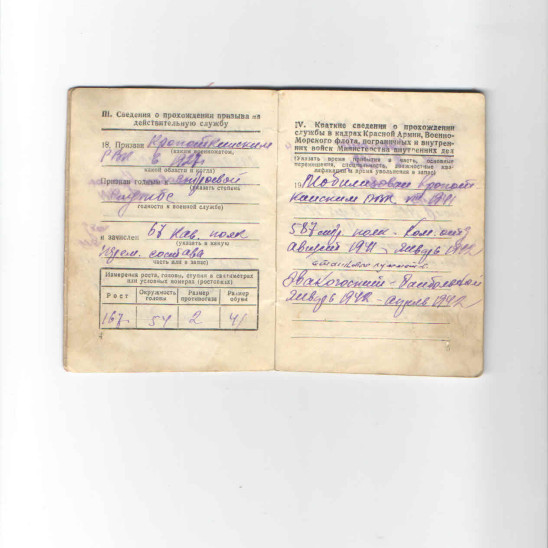 III. Сведения о прохождении призыва на
действительную службу
18. Призван Кропоткинским
(каким военкоматом,
РВК в
какой области и когда)
Признан годным к строевой
(указать степень
службе
годности к военной службе)
и зачислен 67 Кав. полк
(указать в какую
часть или в запас)
состава
Измерение роста, головы, ступни в сантиметрах
или условных номерах (ростовках)
Рост Окружность головы Размер противогаза Размер обуви
167 54 2 41
IV. Краткие сведения о прохождении
службы в кадрах Красной Армии, Военно-
Морского флота, пограничных и внутрен-
них войск Министерства внутренних дел
(Указать время прибытия в часть, основные
перемещения, должность и время увольнения в запас)
19 Мобилизован Кропот
кинским РВК 1941
587 полк - Ком. отд.
август 1941 - январь 1942
Эвакогоспит -
январь 1942 - апрель 1942